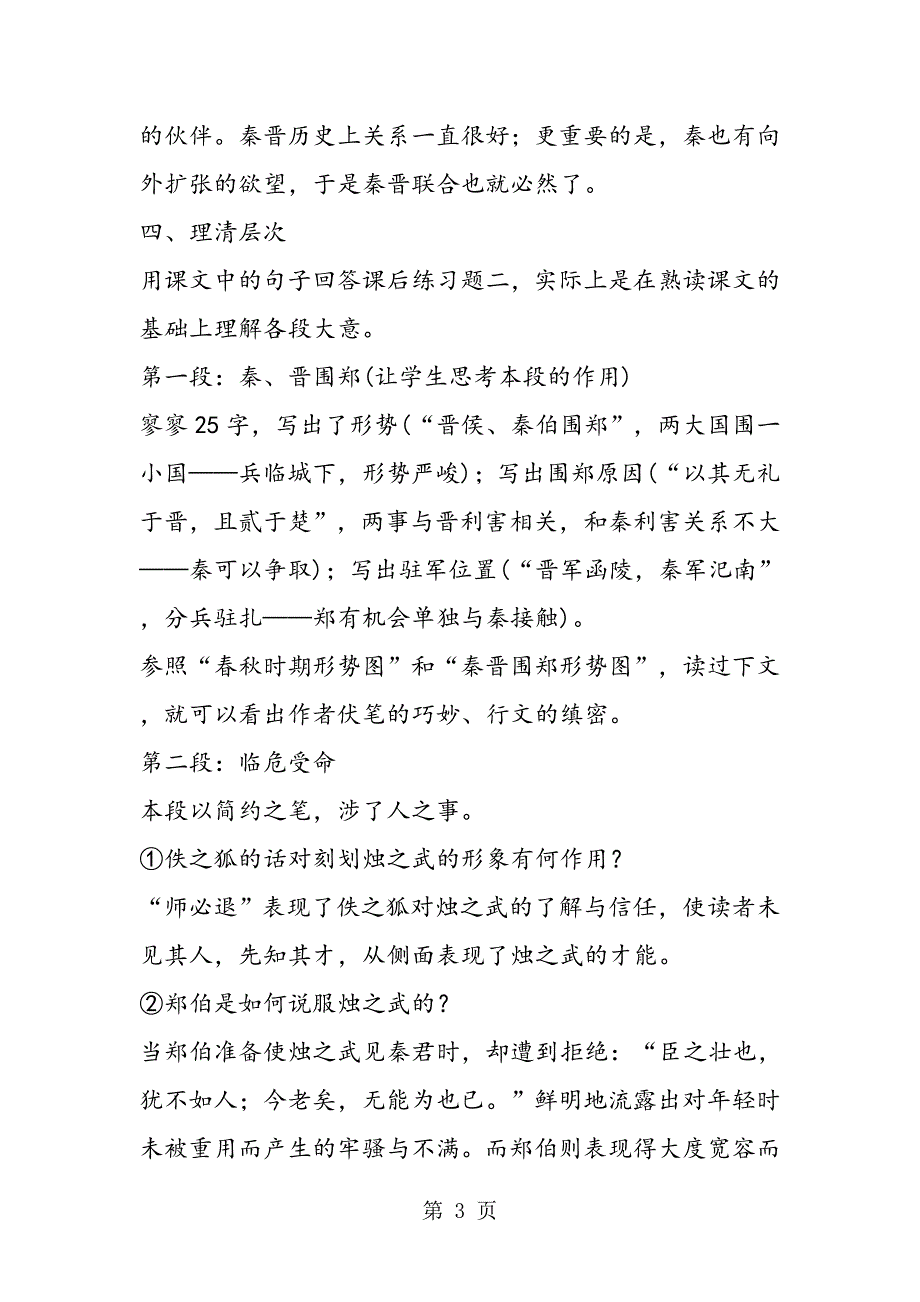 的伙伴。秦晋历史上关系一直很好；更重要的是，秦也有向
外扩张的欲望，于是秦晋联合也就必然了。
四、理清层次
用课文中的句子回答课后练习题二，实际上是在熟读课文的
基础上理解各段大意。
第一段：秦、晋围郑(让学生思考本段的作用)
寥寥25字，写出了形势(“晋侯、秦伯围郑”，两大国围一
小国——兵临城下，形势严峻)；写出围郑原因(“以其无礼
于晋，且贰于楚”，两事与晋利害相关，和秦利害关系不大
——秦可以争取)；写出驻军位置(“晋军函陵，秦军氾南”
，分兵驻扎——郑有机会单独与秦接触)。
参照“春秋时期形势图”和“秦晋围郑形势图”，读过下文
，就可以看出作者伏笔的巧妙、行文的缜密。
第二段：临危受命
本段以简约之笔，涉了人之事。
①佚之狐的话对刻划烛之武的形象有何作用？
“师必退”表现了佚之狐对烛之武的了解与信任，使读者未
见其人，先知其才，从侧面表现了烛之武的才能。
②郑伯是如何说服烛之武的？
当郑伯准备使烛之武见秦君时，却遭到拒绝：“臣之壮也，
犹不如人；今老矣，无能为也已。”鲜明地流露出对年轻时
未被重用而产生的牢骚与不满。而郑伯则表现得大度宽容而
第 3 页